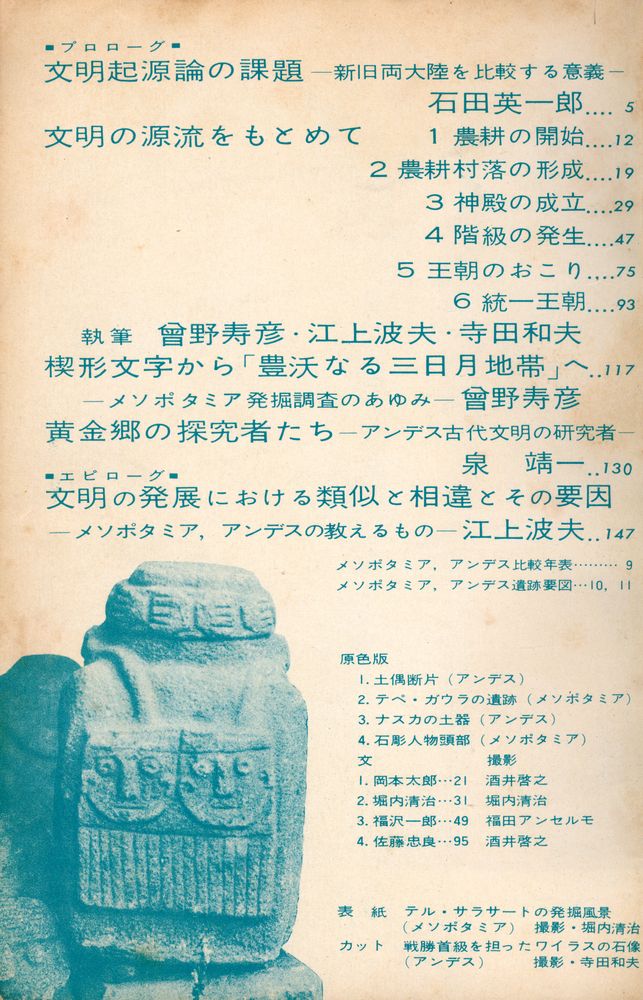 ■プロローグ■
文明起源論の課題―新旧両大陸を比較する意義―
石田英一郎....5
文明の源流をもとめて 1 農耕の開始....12
2 農耕村落の形成....19
3 神殿の成立....29
4 階級の発生....47
5 王朝のおこり....75
6 統一王朝....93
執筆 曾野寿彦・江上波夫・寺田和夫
楔形文字から「豊沃なる三日月地帯」へ..117
―メソポタミア発掘調査のあゆみ―曾野寿彦
黄金郷の探究者たち―アンデス古代文明の研究者―
泉 靖一..130
■エピローグ■
文明の発展における類似と相違とその要因
―メソポタミア，アンデスの教えるもの―江上波夫..147
メソポタミア，アンデス比較年表………9
メソポタミア，アンデス遺跡要図…10，11
原色版
1．土偶断片（アンデス）
2．テペ・ガウラの遺跡（メソポタミア）
3．ナスカの土器（アンデス）
4．石彫人物頭部（メソポタミア）
文 撮影
1．岡本太郎…21 酒井啓之
2．堀内清治…31 堀内清治
3．福沢一郎…49 福田アンセルモ
4．佐藤忠良…95 酒井啓之
表 紙 テル・サラサートの発掘風景
（メソポタミア） 撮影・堀内清治
カット 戦勝首級を担ったワイラスの石像
（アンデス） 撮影・寺田和夫